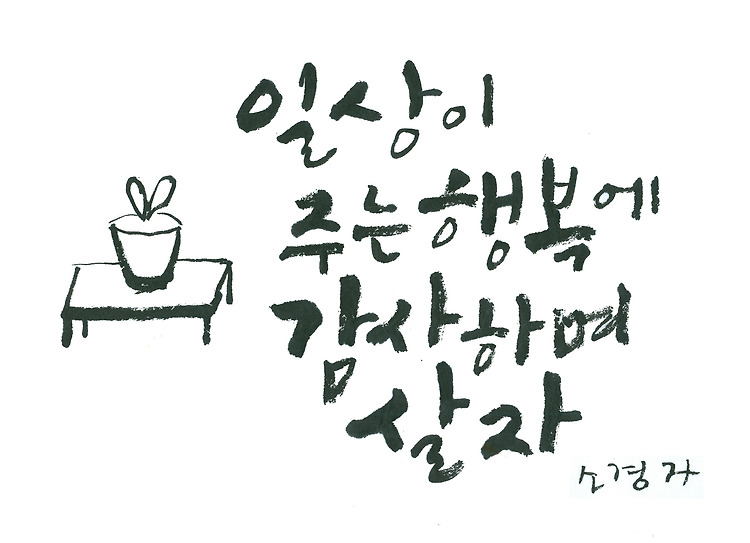 일상이
주는 행복에
감사하며
살자
소경자